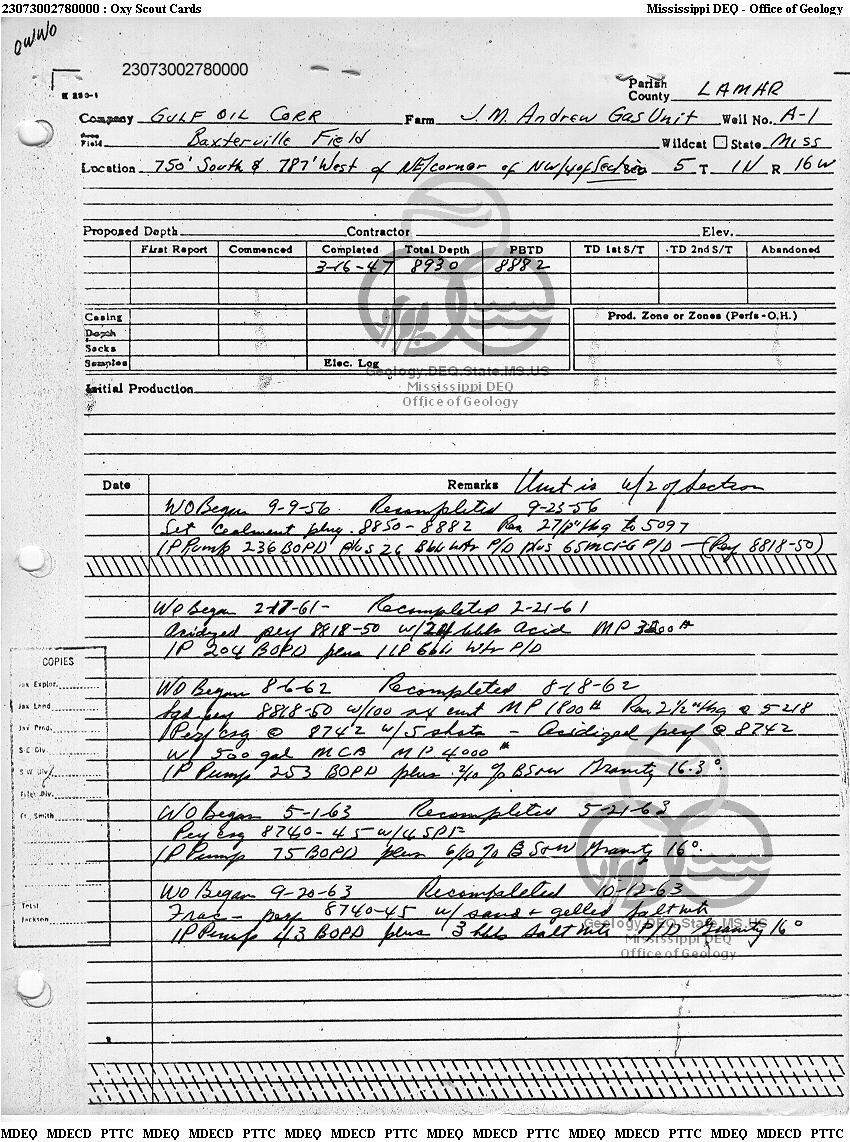 23073002780000 : Oxy Scout Cards Mississippi DEQ - Office of Geology
OWWO
23073002780000
Parish
County LAMAR
Company GULF OIL CORR Farm J.M. Andrew Gas Unit Well No. A-1
Field Baxterville Field Wildcat State Miss
Location 750' South & 787' West of NE/corner of NW/4 of Section 5 T 1N R 16W
Proposed Depth Contractor Elev.
First Report Commenced Completed Total Depth PBTD TD 1st S/T TD 2nd S/T Abandoned
3-16-47 8930 8882
Casing Prod. Zone or Zones (Perfs-O.H.)
Depth
Sacks
Samples Elec. Log
Geology.DEQ.State.MS.US
Initial Production Mississippi DEQ
Office of Geology
Date Remarks Unit is W/2 of Section
WO Began 9-9-56 Recompleted 9-23-56
Set Cealment plug 8850-8882 Ran 2 7/8" tbg to 5097
IP Pump 236 BOPD plus 26 Bbls wtr P/D plus 65 MCFG P/D - (Perf 8818-50)
WO Began 2-17-61 - Recompleted 2-21-61
Acidized perf 8818-50 w/ bbls Acid MP
IP 204 BOPD plus 118 bbls wtr P/D
COPIES
Jax Explor.
WO Began 8-6-62 Recompleted 8-18-62
Jax Land
Sqd perf 8818-50 w/100 sx cmt MP 1800# Ran 2 1/2" tbg @ 5218
Jax Prod.
Perf csg @ 8742 w/5 shots - Acidized perf @ 8742
S.E. Div.
W/ 500 gal MCA MP 4000#
S W Div
IP Pump 253 BOPD plus 2/10 % BS&W Gravity 16.3°
Div.
Ft. Smith
WO Began 5-1-63 Recompleted 5-21-63
Perf csg 8740-45 w/4 SPF
IP Pump 75 BOPD plus 6/10 % BS&W Gravity 16°
WO Began 9-20-63 Recompleted 10-12-63
Total
Frac - perf 8740-45 w/ sand & gelled salt wtr
Jackson
Geology.DEQ.State.MS.US
IP Pump 43 BOPD plus 3 bbls salt wtr P/D Gravity 16°
Mississippi DEQ
Office of Geology
MDEQ MDECD PTTC MDEQ MDECD PTTC MDEQ MDECD PTTC MDEQ MDECD PTTC MDEQ MDECD PTTC MDEQ MDECD PTTC